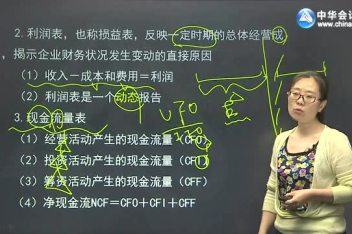 中华会计
2.利润表，也称损益表，反映一定时期的总体经营成
，揭示企业财务状况发生变动的直接原因
（1）收入－成本和费用＝利润
（2）利润表是一个动态报告
3.现金流量表
（1）经营活动产生的现金流量（CFO）
（2）投资活动产生的现金流量（CFI）
（3）筹资活动产生的现金流量（CFF）
（4）净现金流NCF＝CFO＋CFI＋CFF